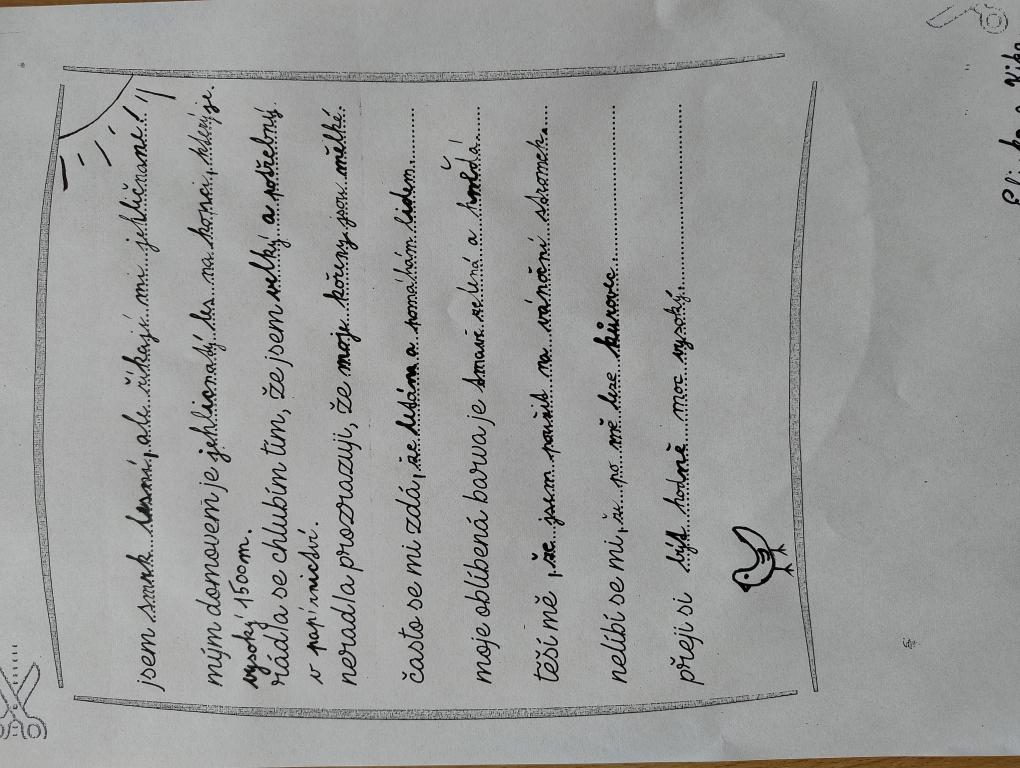 jsem smrk lesní, ale říkají mi jehličnaně!
mým domovem je jehlicnadý les na kopci, který je
vysoký 1500m.
rád/a se chlubím tím, že jsem velký a potřebný
v papírnictví.
nerad/a prozrazuji, že moje kořeny jsou mělké.
často se mi zdá, že létám a pomáhám lidem.
moje oblíbená barva je tmavě zelená a hnědá.
těší mě, že jsem použit na vánoční stromek.
nelíbí se mi, že po mě leze kůrovec
přeji si být hodně moc vysoký.
Eliška a Kika